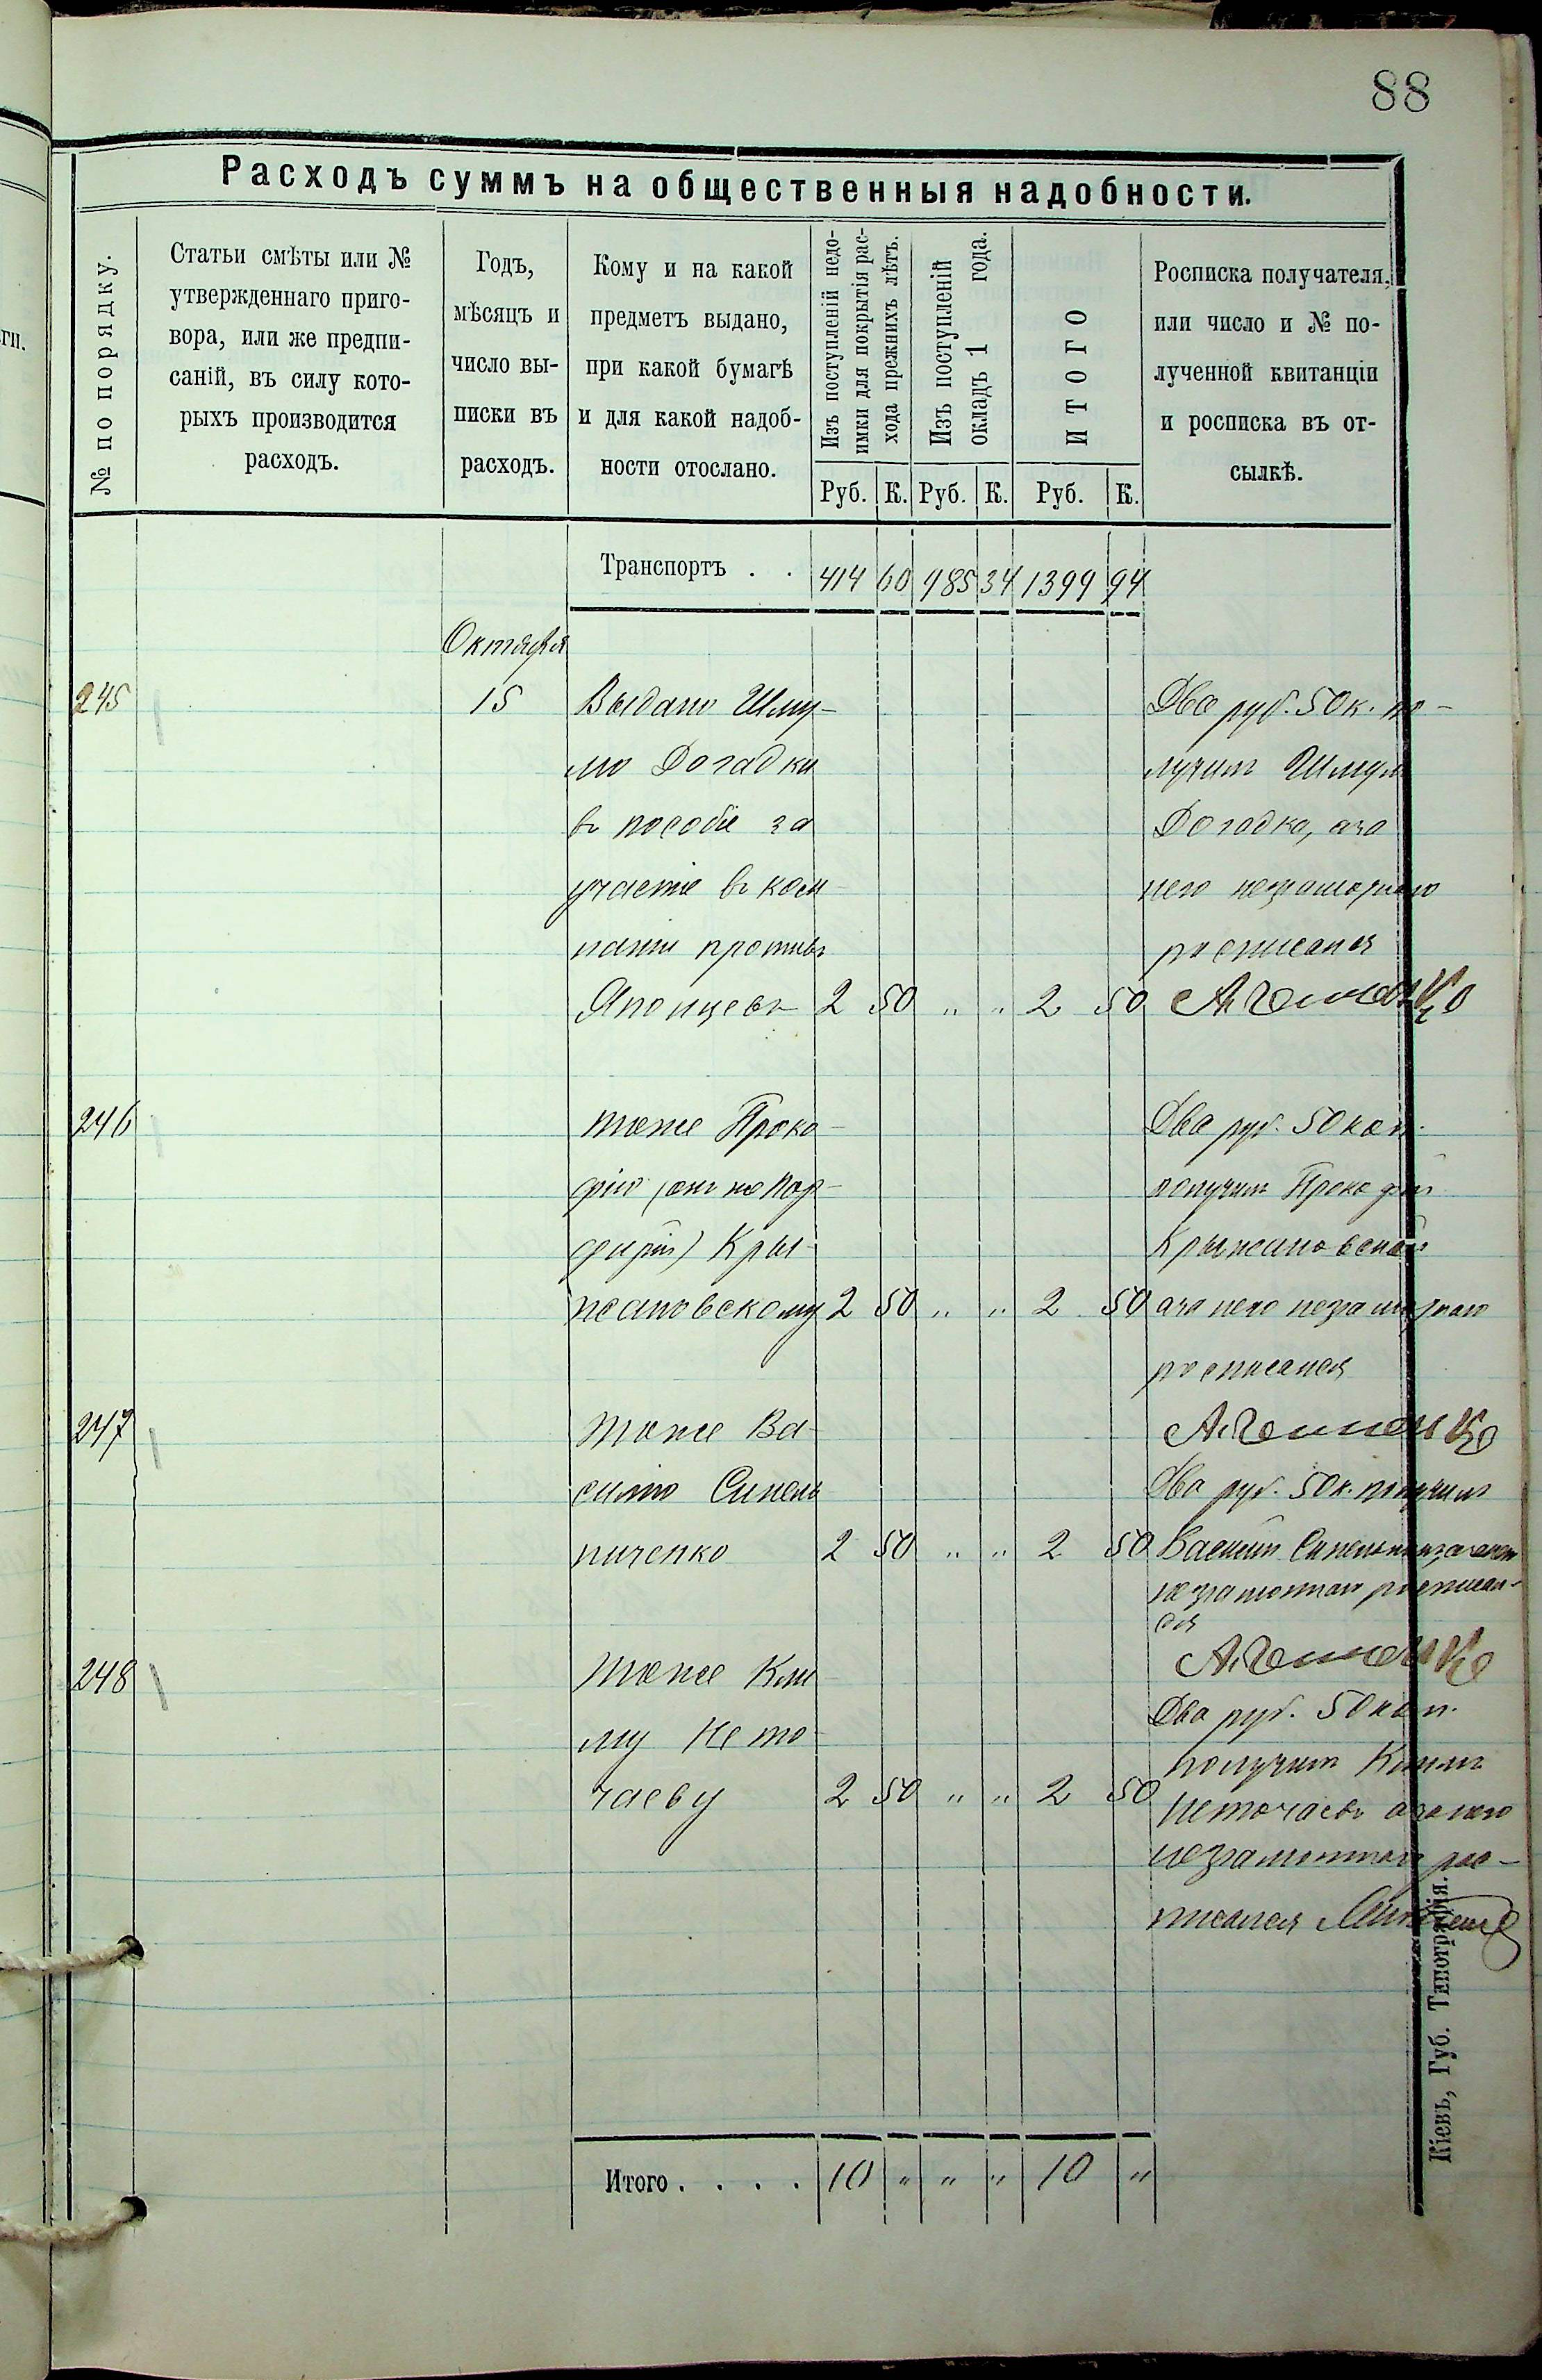 88
Расходъ суммъ на общественныя надобности.
№ по порядку.
Статьи смѣты или №
утвержденнаго приго-
вора, или же предпи-
саній, въ силу кото-
рыхъ производится
расходъ.
Годъ,
мѣсяцъ и
число вы-
писки въ
расходъ.
Кому и на какой
предметъ выдано,
при какой бумагѣ
и для какой надоб-
ности отослано.
Изъ поступленій недо-
имки для покрытія рас-
хода прежнихъ лѣтъ.
Изъ поступленій
окладъ 1 года.
ИТОГО
Росписка получателя,
или число и № по-
лученной квитанціи
и росписка въ от-
сылкѣ.
Руб. К. Руб. К. Руб. К.
Транспортъ . . 414 60 985 34 1399 94
Октября
245 15 Выдано Шму-
лю Догадки
въ пособіе за
участіе въ кам
паніи противъ
Японцевъ 2 50 " " 2 50
Два руб. 50 к. по-
лучилъ Шмуль
Догадка, а за
него неграмотнаго
росписался
246 тоже Проко
фію (онъ же Пор-
фирій) Кры-
жановскому 2 50 " " 2 50
Два руб. 50 коп.
получилъ Прокофій
Крыжановскій
а за него неграмотнаго
росписался
247 тоже Ва-
силію Синель
ниченко 2 50 " " 2 50
Два руб. 50 к. получилъ
Василій
неграмотнаго росписал-
ся
248 тоже Кли
му Нето
чаеву 2 50 " " 2 50
Два руб. 50 коп.
получилъ Климъ
Неточаевъ а за него
неграмотнаго рос-
писался
Итого . . . . 10 " " " 10 "
Кіевъ, Губ. Типографія.